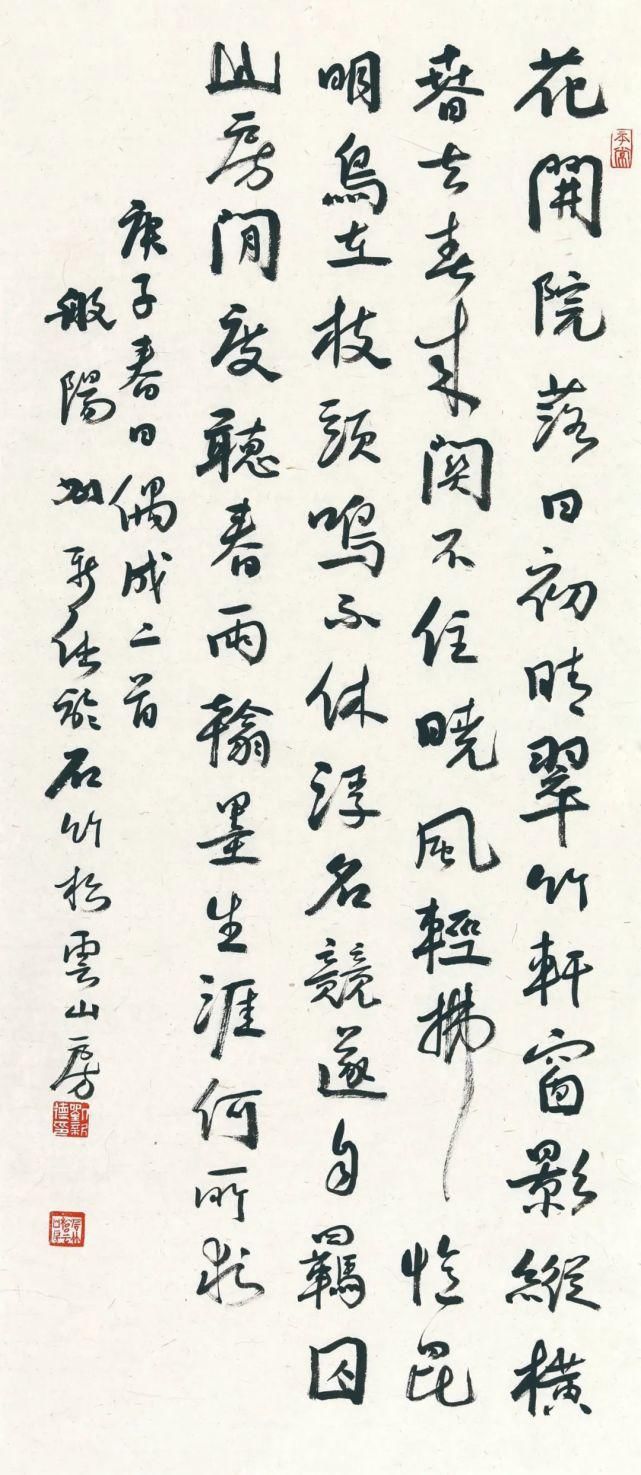 花開院落日初晴翠竹軒窗影縱橫
春去春來關不住曉風輕拂憶昆
明鳥在枝頭鳴不休浮名競逐自羈囚
山房閒度聽春雨翰墨生涯何所求
庚子春日偶成二首
般陽劉新德於石竹松雲山房
劉新德印